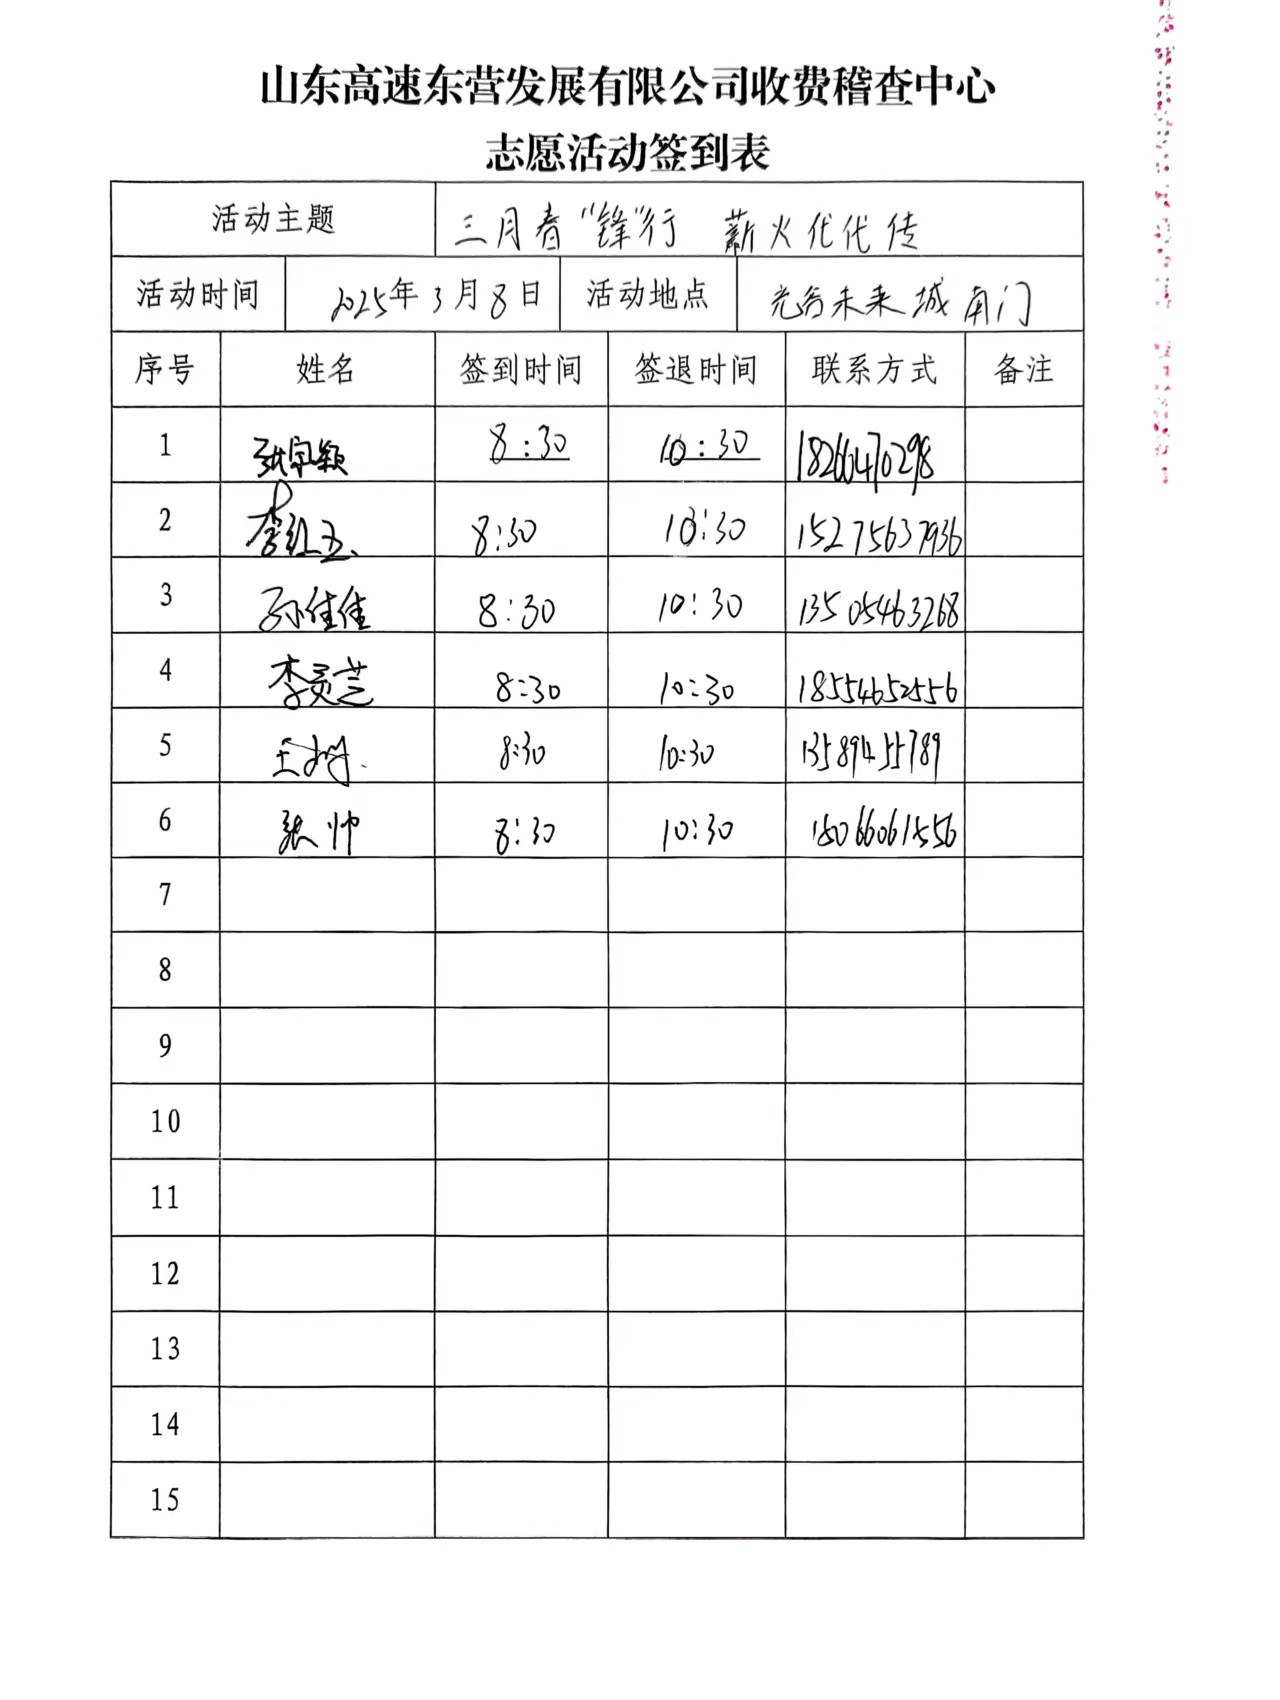 山东高速东营发展有限公司收费稽查中心
志愿活动签到表
活动主题 三月春“锋”行 薪火代代传
活动时间 2025年3月8日 活动地点 未来城南门
序号 姓名 签到时间 签退时间 联系方式 备注
1 8:30 10:30 18266470298
2 李红玉 8:30 10:30 15275637936
3 孙佳佳 8:30 10:30 13505463268
4 李灵芝 8:30 10:30 18554652556
5 王 8:30 10:30 13589455789
6 张帅 8:30 10:30 15066061556
7
8
9
10
11
12
13
14
15